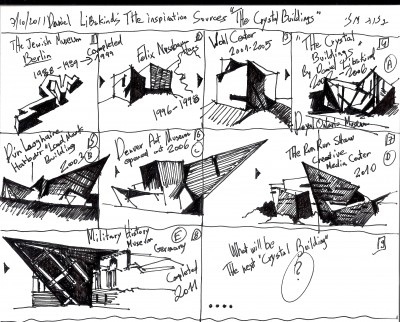 7/10/2011 Daniel Libskinds The inspiration Sources "The Crystal Buildings"
The Jewish Museum
Berlin
1988-1989 → Completed
1999
1
Felix Nusbaum
Haus
1996-1998
2
Wohl Center
2001-2005
3
"The Crystal
Buildings"
By Daniel Libskind
4
A
Royal Ontario Museum
Dun Laoghaire
Harbour "Land Mark
Building
2003
5
B
Denver Art Museum
opened oct 2006
6
C
The Run Run Shaw
Creative
Media Center
2010
7
D
Military History
Museum
Germany
Completed
2011
E
8
What will be
The next "Crystal Building"
!?
9
....